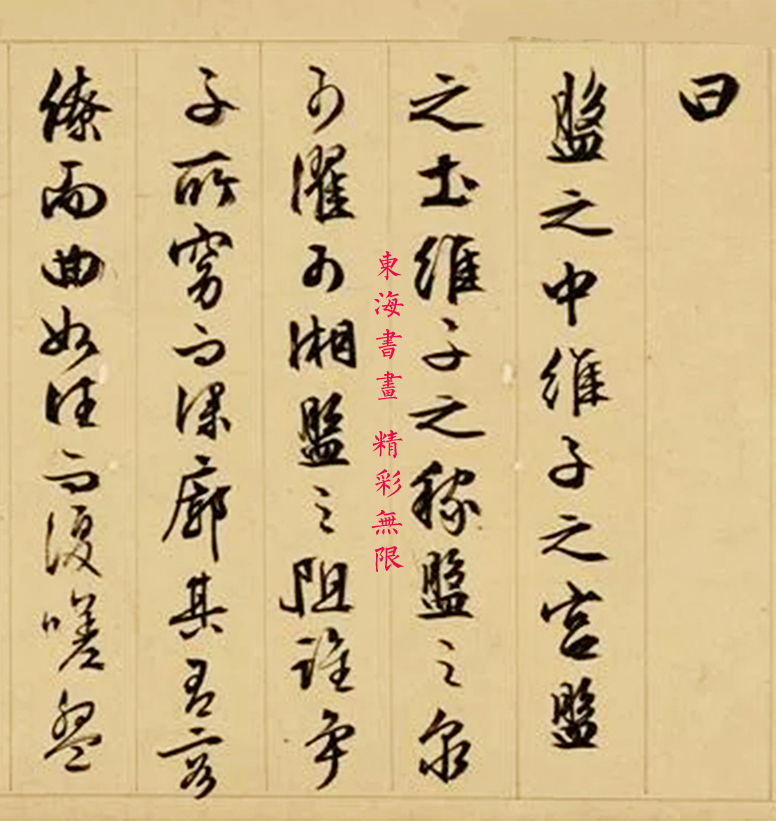 曰
盤之中維子之宮盤
之土維子之稼盤之泉
可濯可湘盤之阻誰爭
子所窈而深廓其有容
繚而曲如往而復嗟盤
東海書畫 精彩無限